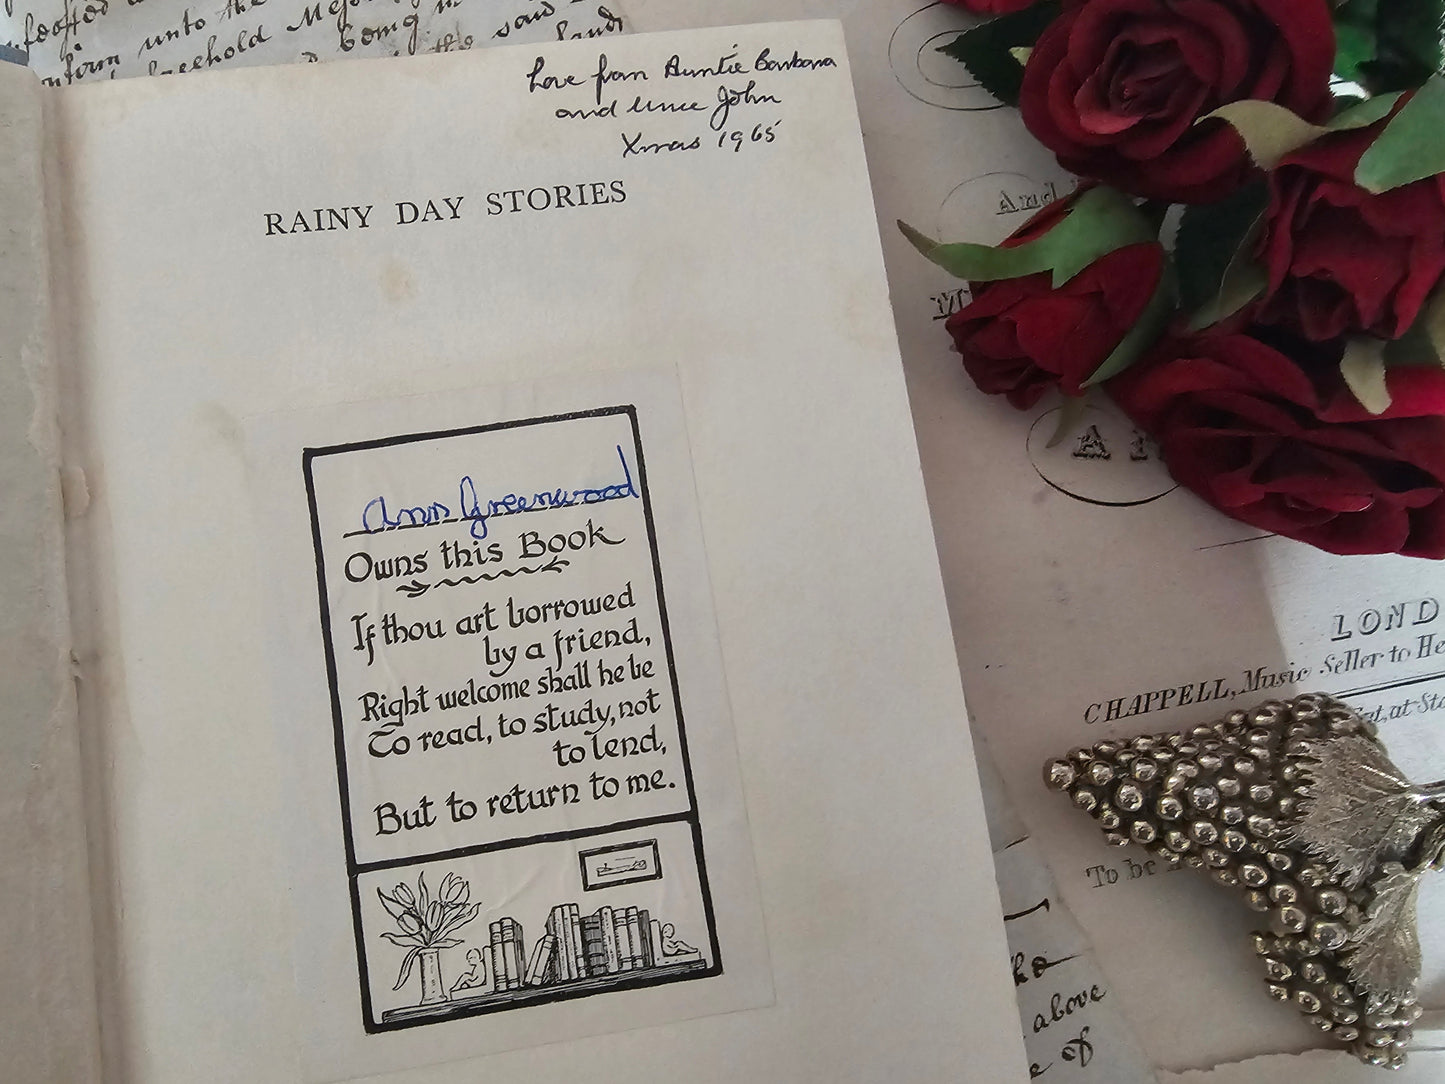 unto the
freehold
being
the said
Love from Auntie Barbara
and Uncle John
Xmas 1965
RAINY DAY STORIES
Ann Greenwood
Owns this Book
If thou art borrowed
by a friend,
Right welcome shall he be
To read, to study, not
to lend,
But to return to me.
And
A
LOND
CHAPPELL, Music Seller to He
To be
above